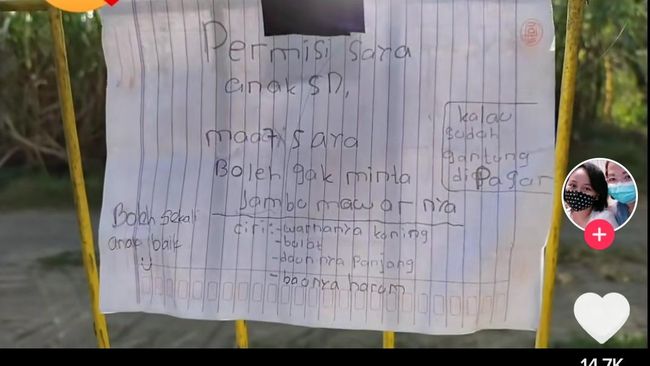 Permisi saya
anak SD,
maaf saya
Boleh gak minta
Jambu mawar nya
ciri:-warnanya kuning
-bulat
-daunnya panjang
-baunya harum
kalau
sudah
gantung
di Pagar
Boleh sekali
anak baik
14.7K